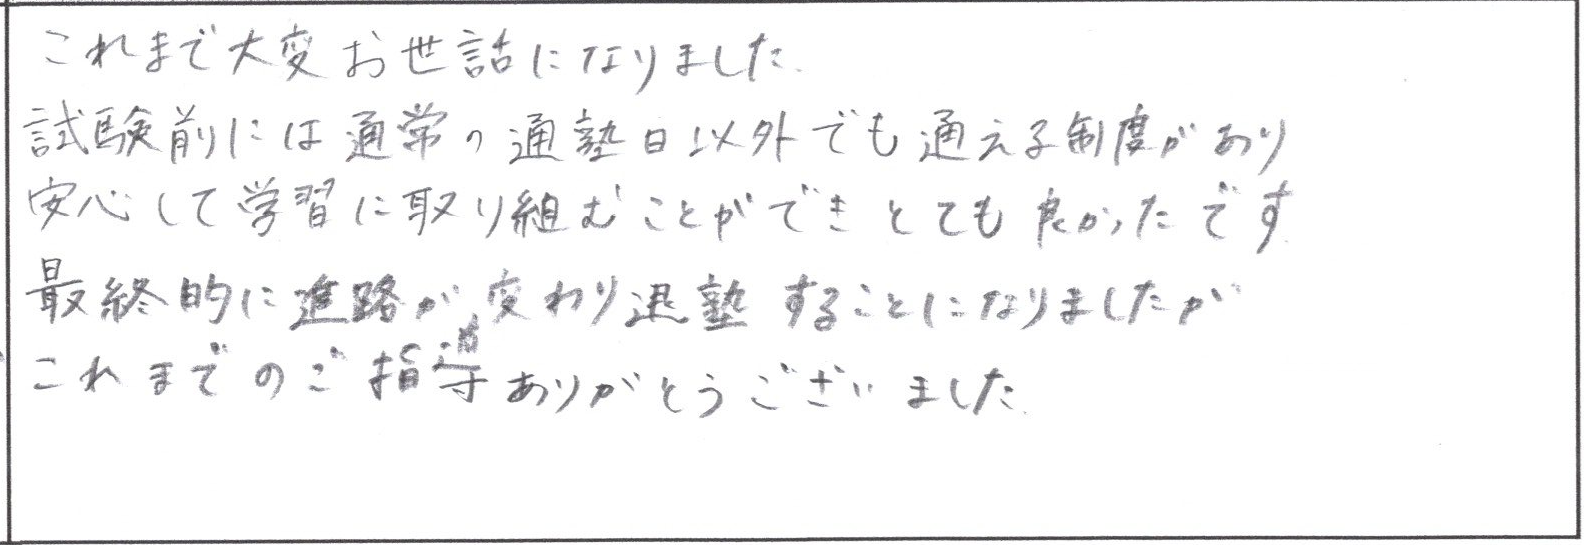 これまで大変お世話になりました.
試験前には通常の通塾日以外でも通える制度があり
安心して学習に取り組むことができとても良かったです.
最終的に進路が変わり退塾することになりましたが
これまでのご指導ありがとうございました.